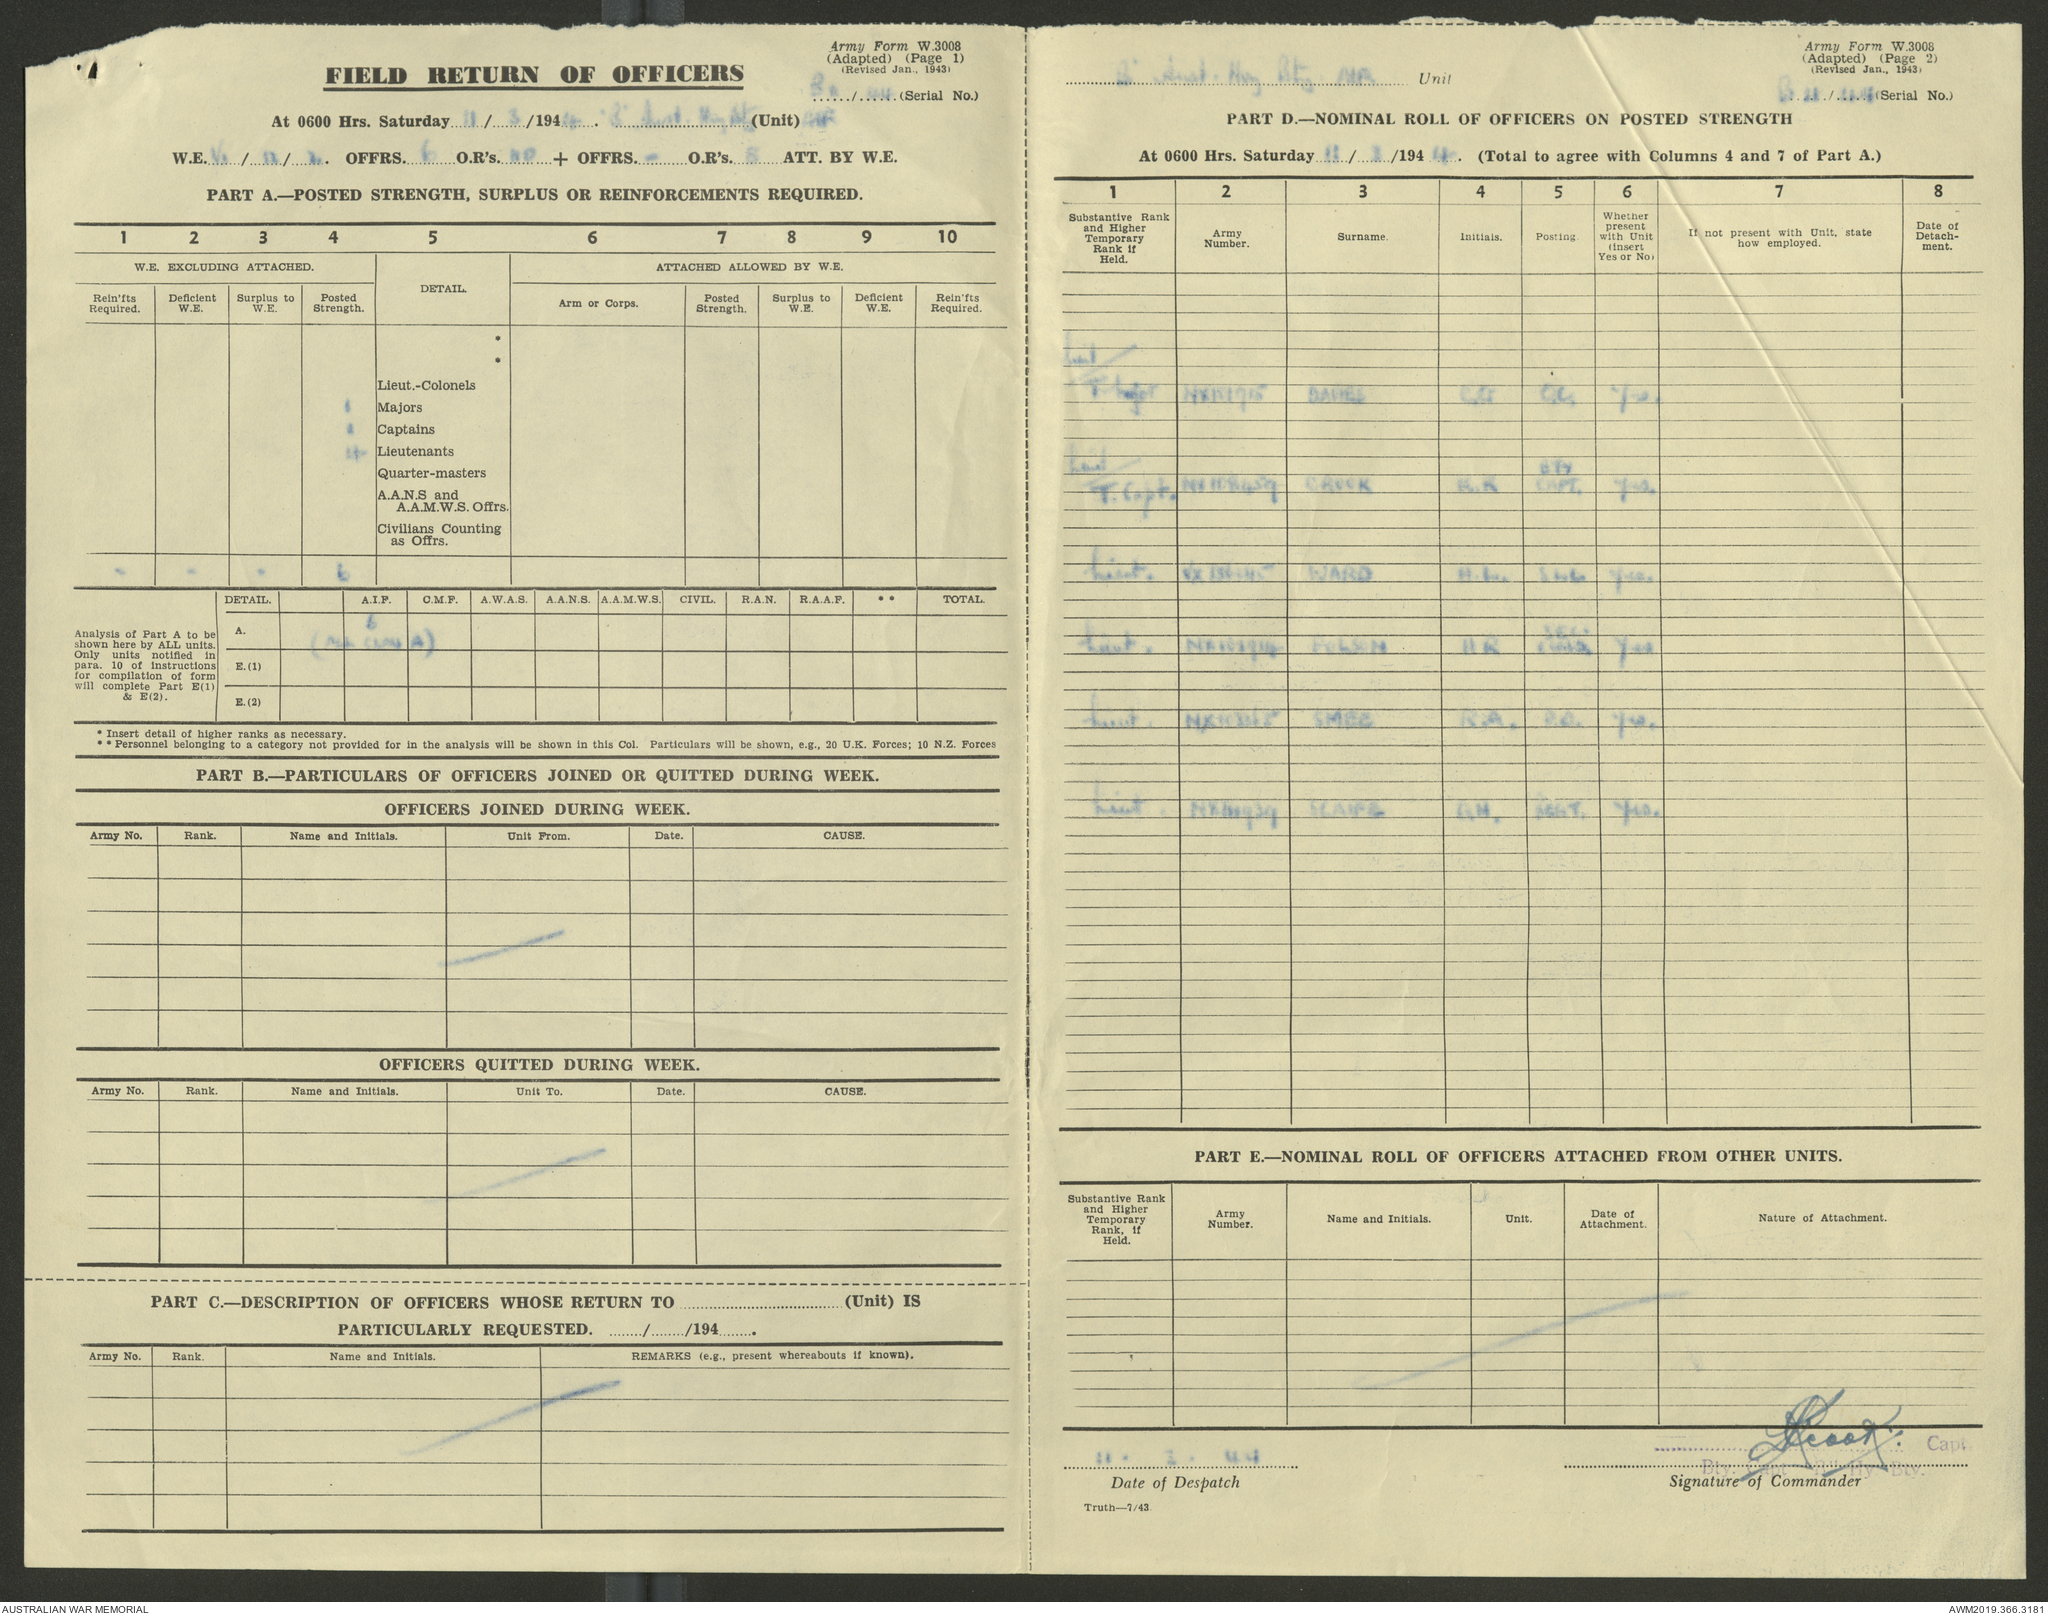 Army Form W.3008
(Adapted) (Page 1)
(Revised Jan., 1943)
FIELD RETURN OF OFFICERS
....../...... (Serial No.)
At 0600 Hrs. Saturday 11 / 3 /1944. (Unit)
W.E. / / . OFFRS. 6 O.R's. + OFFRS. - O.R's. ATT. BY W.E.
PART A.—POSTED STRENGTH, SURPLUS OR REINFORCEMENTS REQUIRED.
1 2 3 4 5 6 7 8 9 10
W.E. EXCLUDING ATTACHED. DETAIL. ATTACHED ALLOWED BY W.E.
Rein'fts Required. Deficient W.E. Surplus to W.E. Posted Strength. Arm or Corps. Posted Strength. Surplus to W.E. Deficient W.E. Rein'fts Required.
*
*
Lieut.-Colonels
1 Majors
1 Captains
4 Lieutenants
Quarter-masters
A.A.N.S and
A.A.M.W.S. Offrs.
Civilians Counting
as Offrs.
- - - 6
DETAIL. A.I.F. C.M.F. A.W.A.S. A.A.N.S. A.A.M.W.S. CIVIL. R.A.N. R.A.A.F. ** TOTAL.
Analysis of Part A to be
shown here by ALL units.
Only units notified in
para. 10 of instructions
for compilation of form
will complete Part E(1)
& E(2).
A. 6
(ALL CLASS A)
E.(1)
E.(2)
* Insert detail of higher ranks as necessary.
** Personnel belonging to a category not provided for in the analysis will be shown in this Col. Particulars will be shown, e.g., 20 U.K. Forces; 10 N.Z. Forces
PART B.—PARTICULARS OF OFFICERS JOINED OR QUITTED DURING WEEK.
OFFICERS JOINED DURING WEEK.
Army No. Rank. Name and Initials. Unit From. Date. CAUSE.
OFFICERS QUITTED DURING WEEK.
Army No. Rank. Name and Initials. Unit To. Date. CAUSE.
PART C.—DESCRIPTION OF OFFICERS WHOSE RETURN TO ........ (Unit) IS
PARTICULARLY REQUESTED. ......../......../194........
Army No. Rank. Name and Initials. REMARKS (e.g., present whereabouts if known).
Army Form W.3008
(Adapted) (Page 2)
(Revised Jan., 1943)
Aust. Hvy Bty Unit
(Serial No.)
PART D.—NOMINAL ROLL OF OFFICERS ON POSTED STRENGTH
At 0600 Hrs. Saturday 11 / 3 /1944. (Total to agree with Columns 4 and 7 of Part A.)
1 2 3 4 5 6 7 8
Substantive Rank and Higher Temporary Rank if Held. Army Number. Surname. Initials. Posting. Whether present with Unit (insert Yes or No) If not present with Unit, state how employed. Date of Detachment.
Lieut
T. Major O.C. Yes.
Lieut BTY
T. Capt. CAPT. Yes.
Lieut. WARD Yes.
Lieut. Yes
Lieut. SMEE R.A. Yes.
Lieut. G.H. Yes.
PART E.—NOMINAL ROLL OF OFFICERS ATTACHED FROM OTHER UNITS.
Substantive Rank and Higher Temporary Rank, if Held. Army Number. Name and Initials. Unit. Date of Attachment. Nature of Attachment.
11 . 3 . 44 Capt.
Date of Despatch Signature of Commander
Truth—7/43
AUSTRALIAN WAR MEMORIAL AWM2019.366.3181